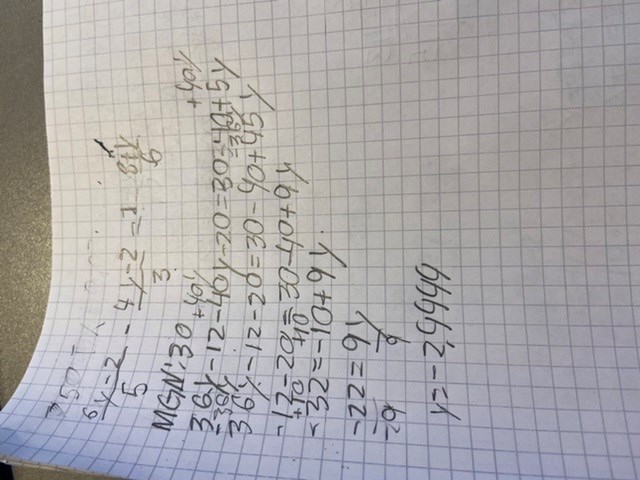 6y-2/5 - 4y-2/3 = 1
MGN:30 +40y +40y
36y-12-40y-20=30-40+5y
-36y -36y
36y-12-20=30-40+45y
-12-20=30-40+9y
+10 +10
-32=-10+9y
-22=9y
-29 9
y=-2,4444